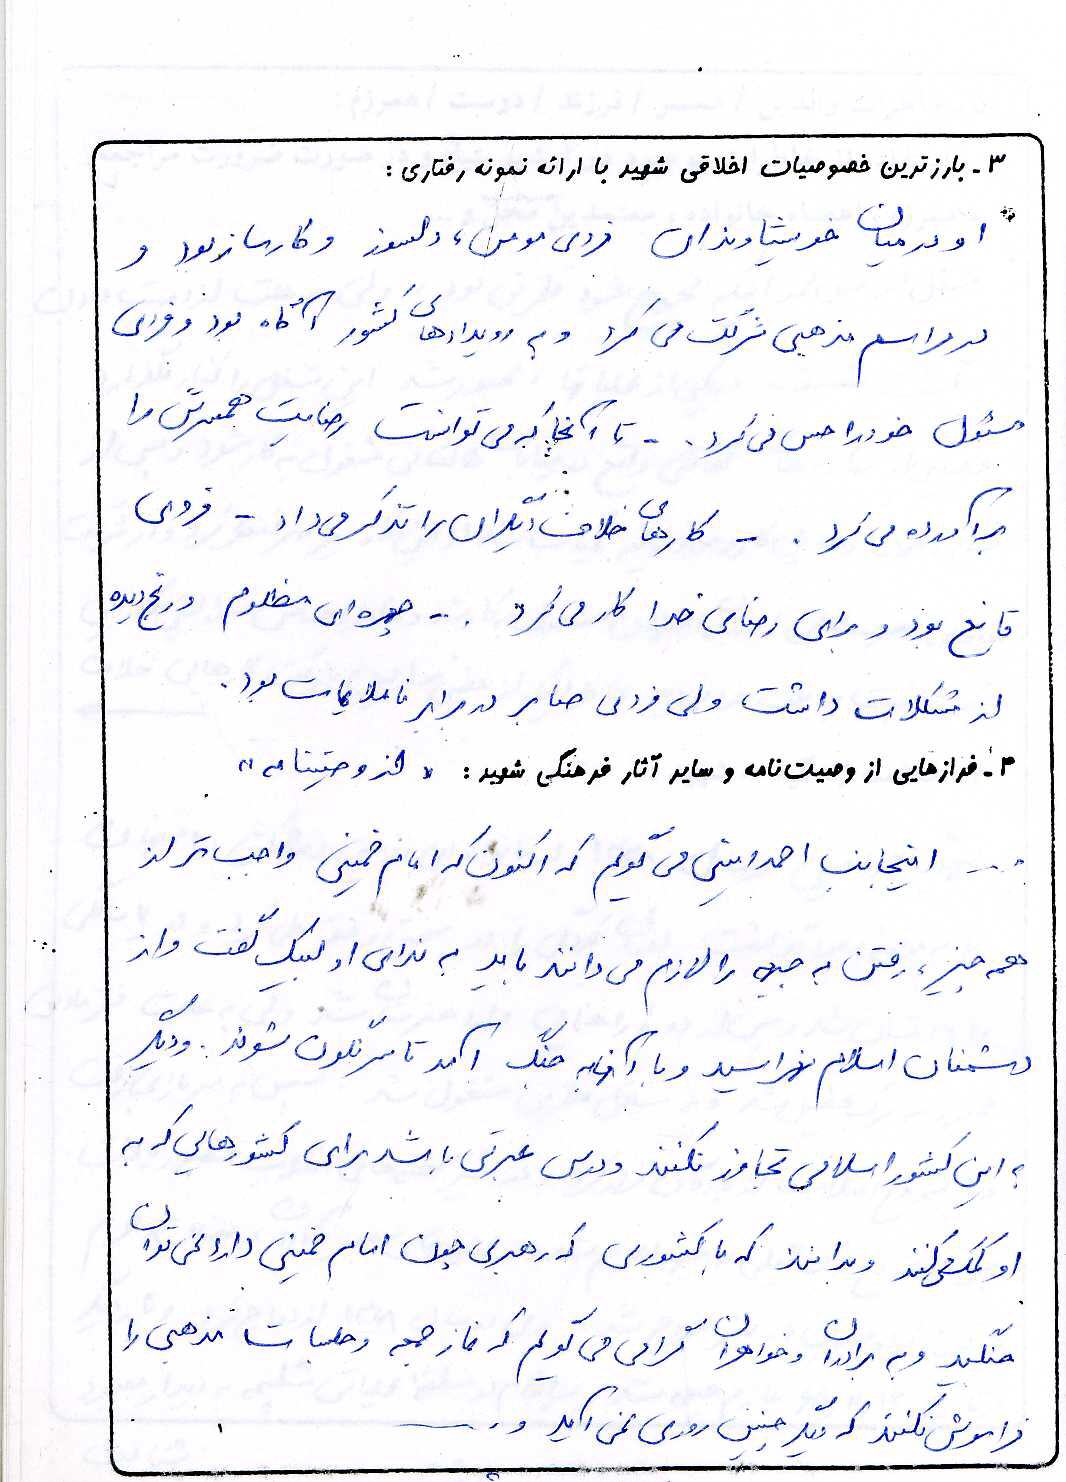 ۳ - بارزترین خصوصیات اخلاقی شهید با ارائه نمونه رفتاری :
او در میان خویشاوندان فردی مومن، دلسوز و کارساز بود و
در مراسم مذهبی شرکت می کرد و به رویدادهای کشور آگاه بود و فردی
مسئول خود را حس می کرد. - تا آنجا که می توانست رضایت همسرش را
برآورده می کرد. - کارهای خلاف دیگران را تذکر می داد - فردی
قانع بود و برای رضای خدا کار می کرد. - چهره ای مظلوم و رنج دیده
از مشکلات داشت ولی فردی صابر در برابر ناملایمات بود.
۴ - فرازهایی از وصیت نامه و سایر آثار فرهنگی شهید : « از وصیتنامه »
... اینجانب احمد می گویم که اکنون که امام خمینی واجب تر از
همه چیز، رفتن به جبهه را لازم می دانند باید به ندای او لبیک گفت و از
دشمنان اسلام نهراسید و با آنها به جنگ آمد تا سرنگون شوند. و دیگر
به این کشور اسلامی تجاوز نکنند و درس عبرتی باشد برای کشورهایی که به
او کمک می کنند و بدانند که با کشوری که رهبری چون امام خمینی دارد نمی توان
جنگید و به برادران و خواهران گرامی می گویم که نماز جمعه و جلسات مذهبی را
فراموش نکنند که دیگر چنین روزی نمی آید و ...